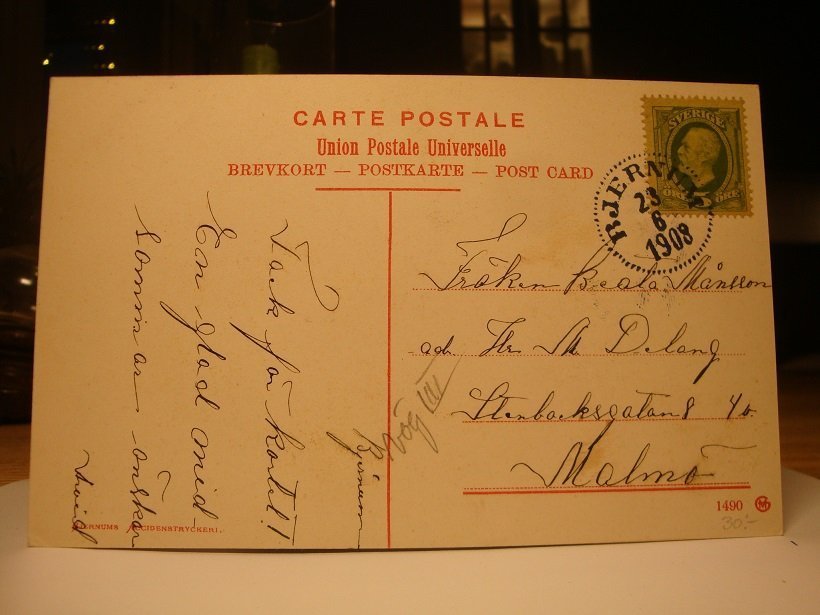 CARTE POSTALE
Union Postale Universelle
BREVKORT — POSTKARTE — POST CARD
SVERIGE
5
BJERNUM
23
6
1908
Fröken Beata Månsson
ad. Hr. M. Delang
Stenbocksgatan 8
Malmö
Tack för kortet!
En glad mid-
sommar önskar
1490
30:-
BJERNUMS ACCIDENSTRYCKERI.